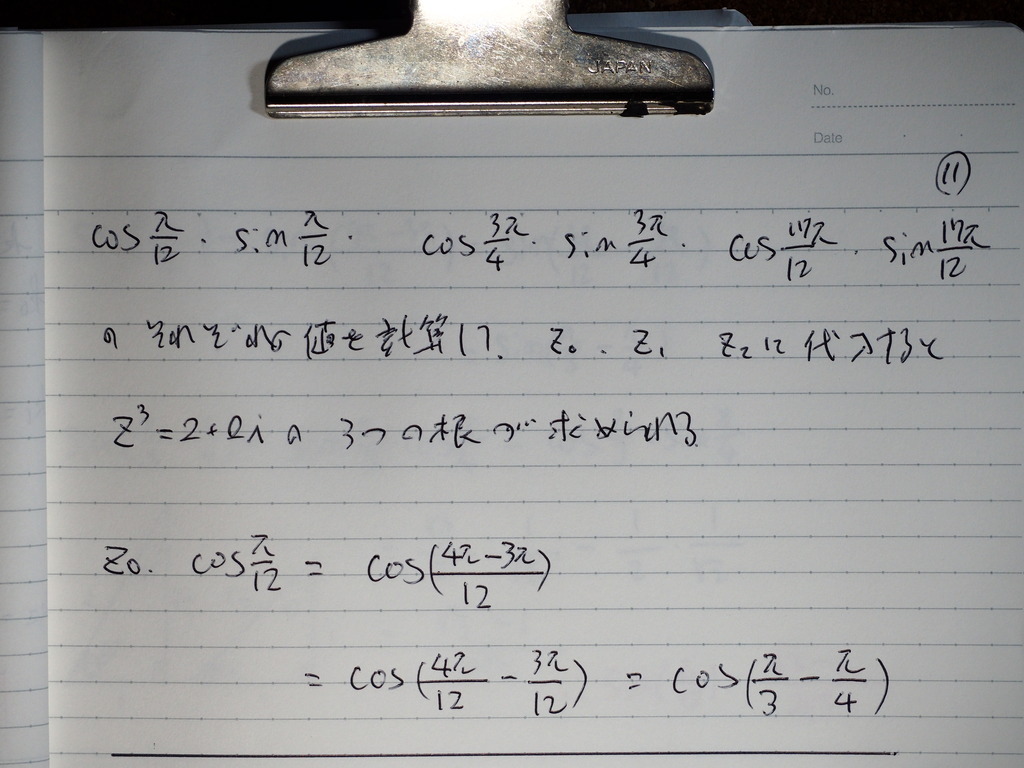 JAPAN
No.
Date
⑪
cos π/12 . sin π/12 . cos 3π/4 . sin 3π/4 . cos 17π/12 . sin 17π/12
の それぞれの 値を 計算して、 Z₀ . Z₁ Z₂に 代入すると
Z³ = 2+2i の 3つの根が 求められる
Z₀. cos π/12 = cos(4π-3π/12)
= cos(4π/12 - 3π/12) = cos(π/3 - π/4)